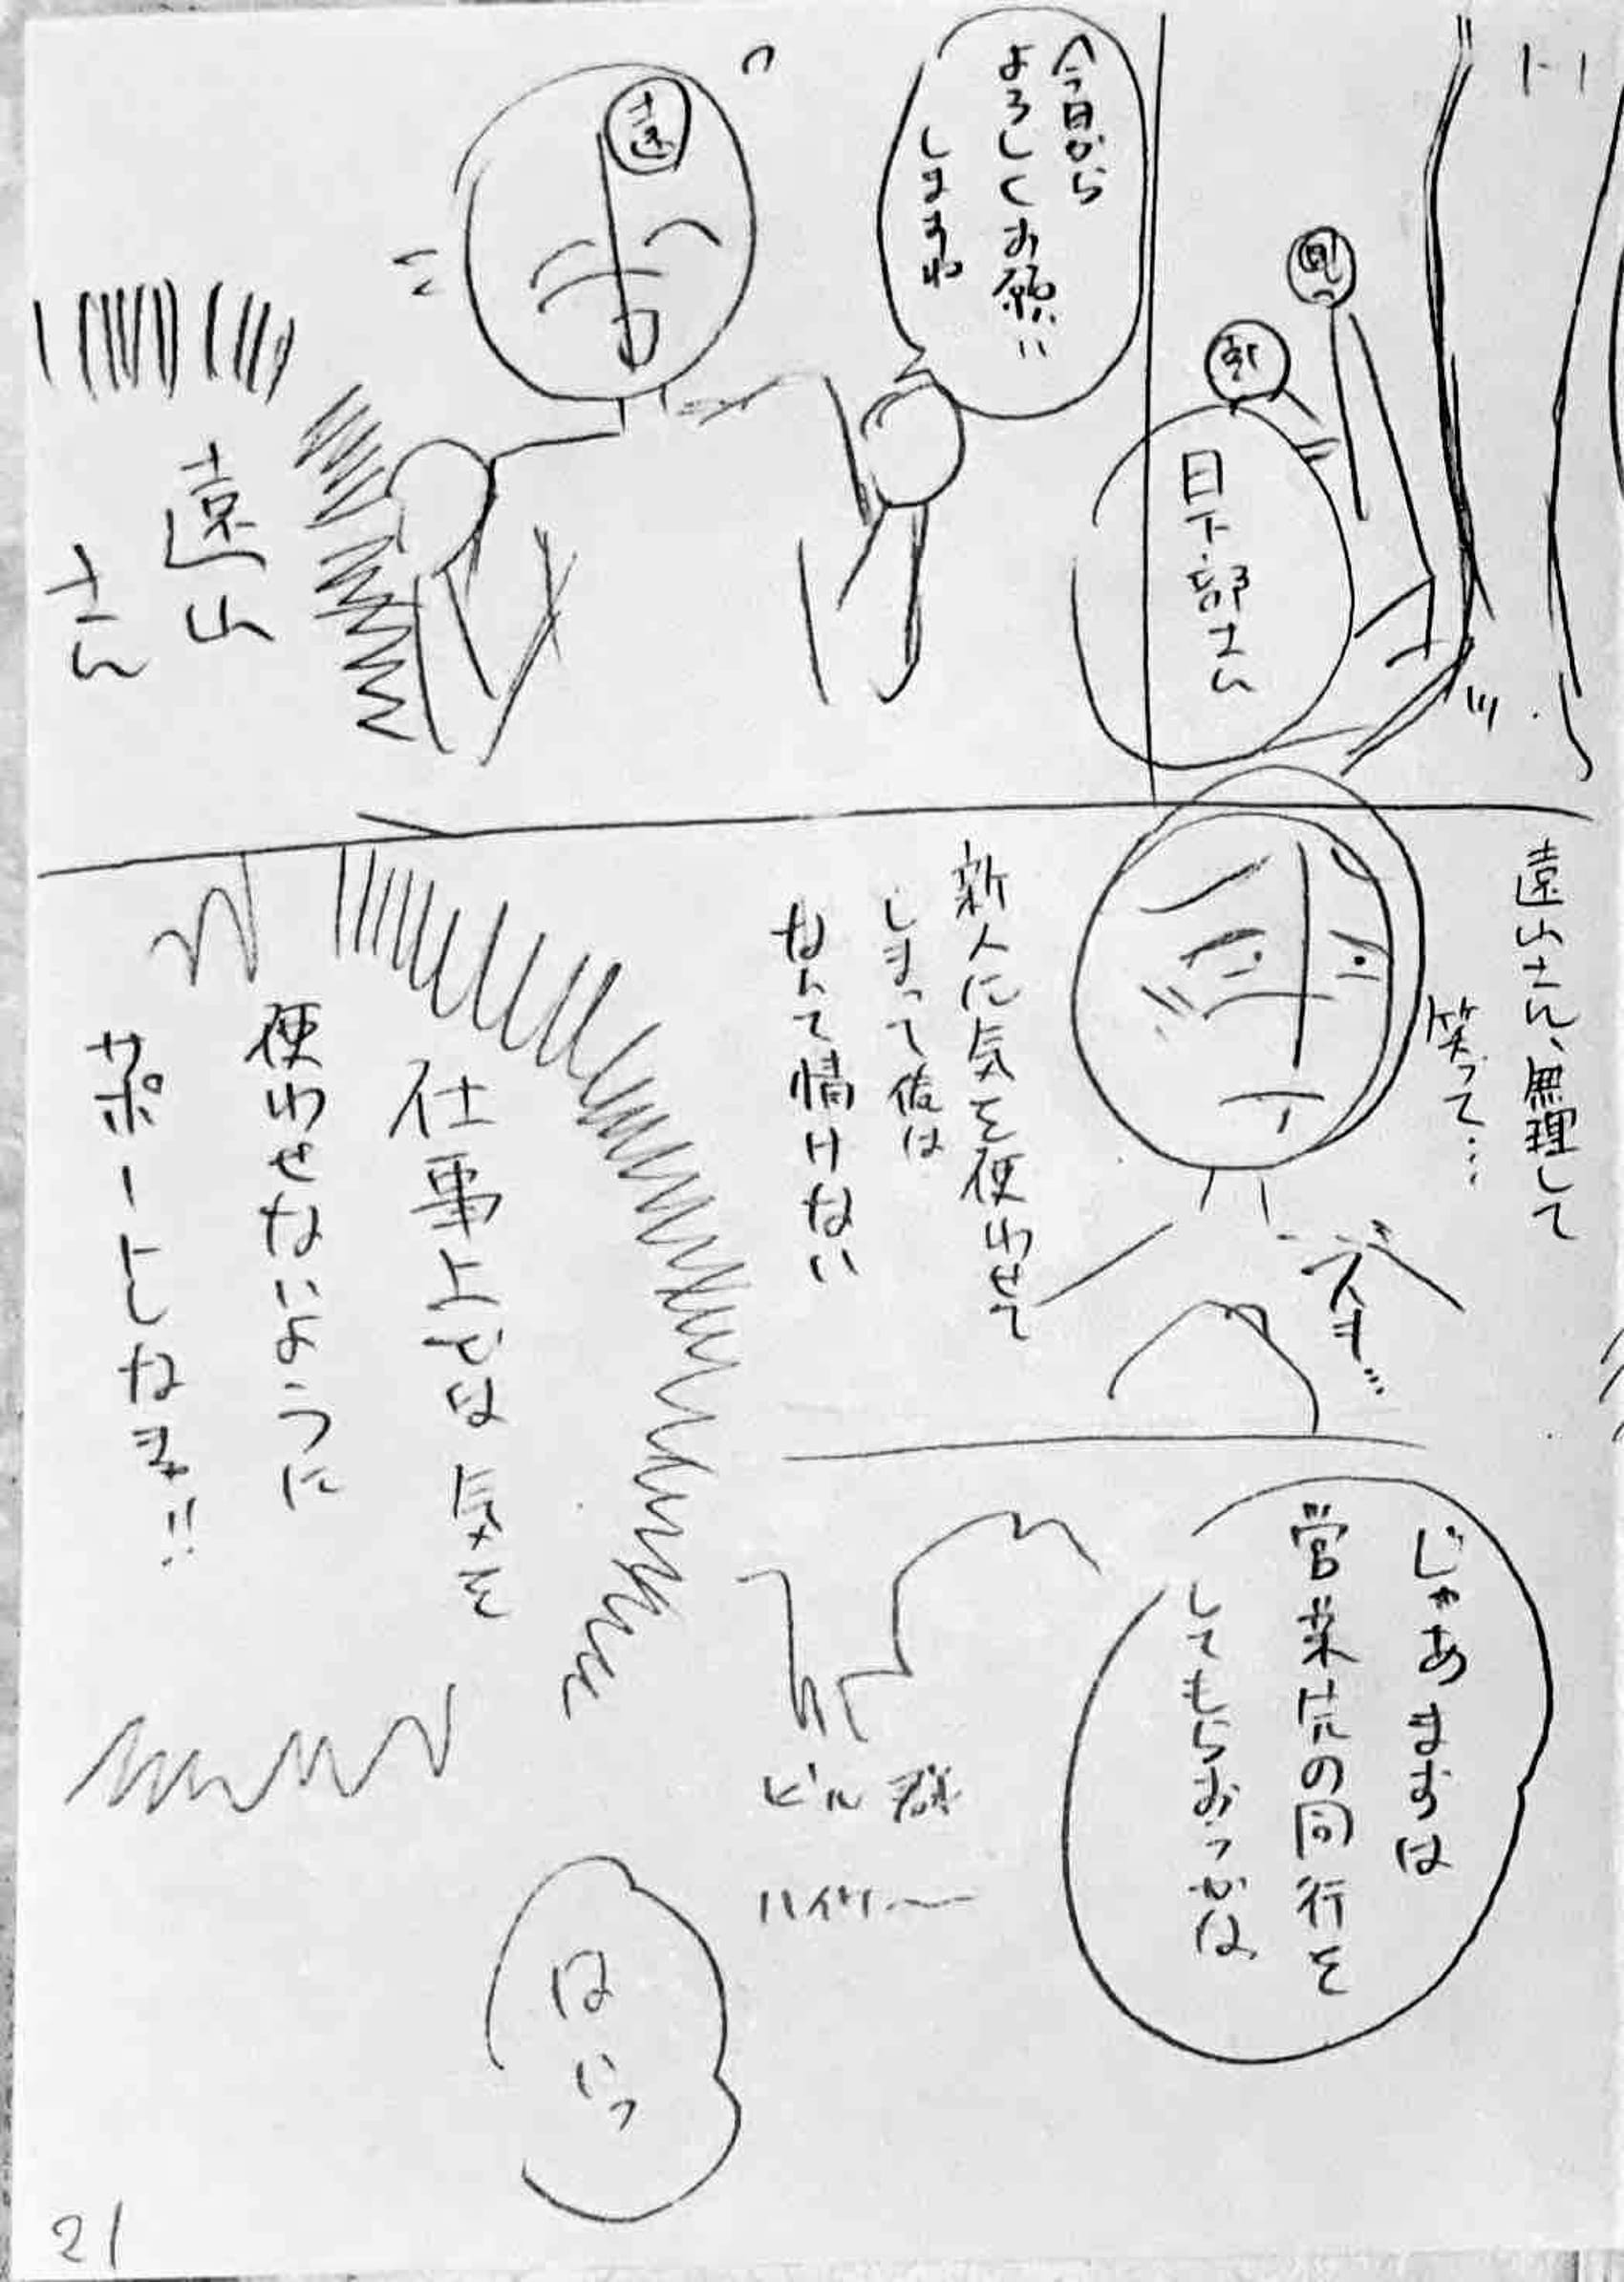 日下部さん
今日から
よろしくお願い
しますね
遠
遠山
さん
遠山さん、無理して
笑って…
新人に気を使わせて
しまって俺は
なんて情けない
じゃあまずは
営業先の同行を
してもらおっかな
ビル群
はいっ
仕事上では気を
使わせないように
サポートしなきゃ!!
21